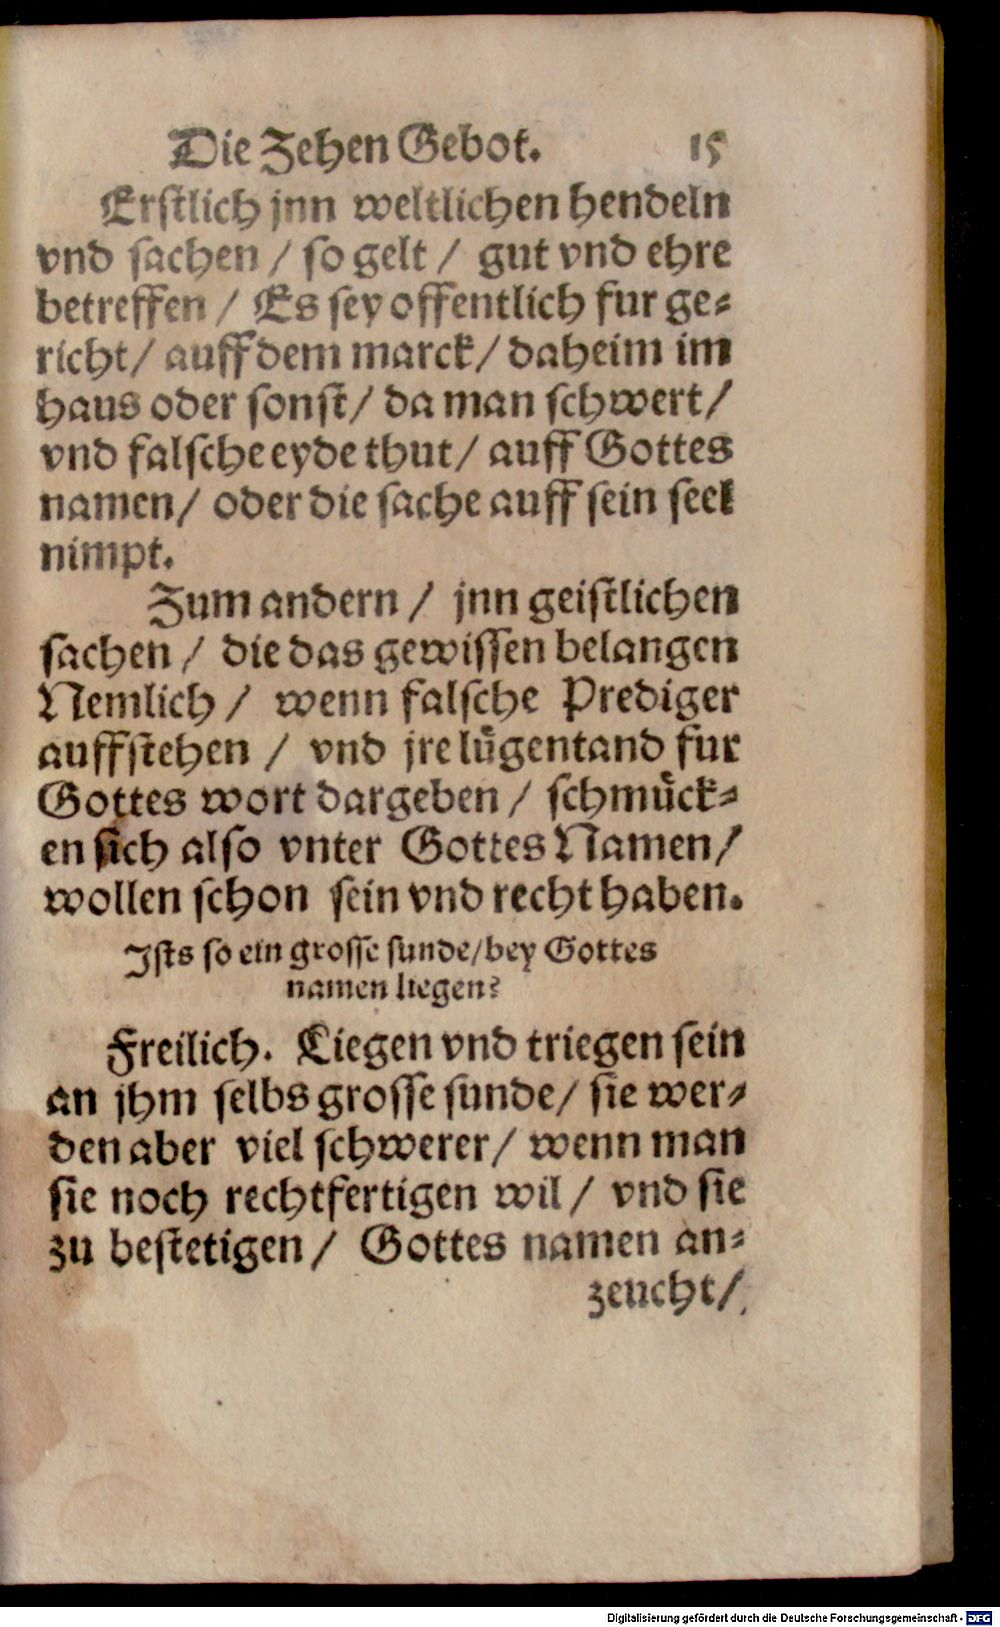 Die Zehen Gebot. 15
Erstlich jnn weltlichen hendeln
vnd sachen / so gelt / gut vnd ehre
betreffen / Es sey offentlich fur ge-
richt / auff dem marck / daheim im
haus oder sonst / da man schwert /
vnd falsche eyde thut / auff Gottes
namen / oder die sache auff sein seel
nimpt.
Zum andern / jnn geistlichen
sachen / die das gewissen belangen
Nemlich / wenn falsche Prediger
auffstehen / vnd jre lůgentand fur
Gottes wort dargeben / schmůck-
en sich also vnter Gottes Namen /
wollen schon sein vnd recht haben.
Ists so ein grosse sunde / bey Gottes
namen liegen?
Freilich. Liegen vnd triegen sein
an jhm selbs grosse sunde / sie wer-
den aber viel schwerer / wenn man
sie noch rechtfertigen wil / vnd sie
zu bestetigen / Gottes namen an-
zeucht /
Digitalisierung gefördert durch die Deutsche Forschungsgemeinschaft - DFG